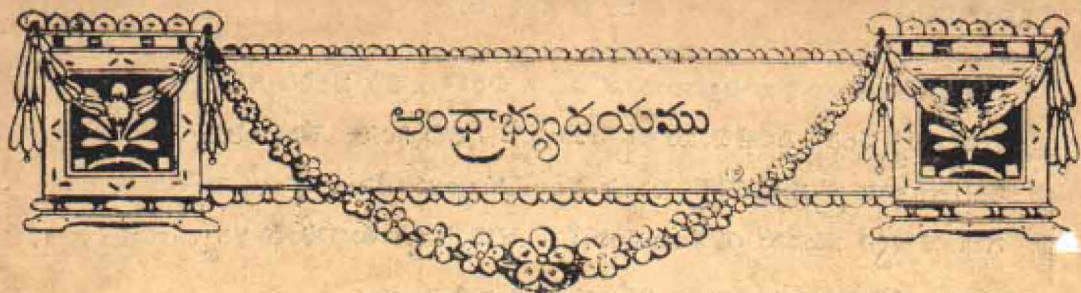 ఆంధ్రాభ్యుదయము